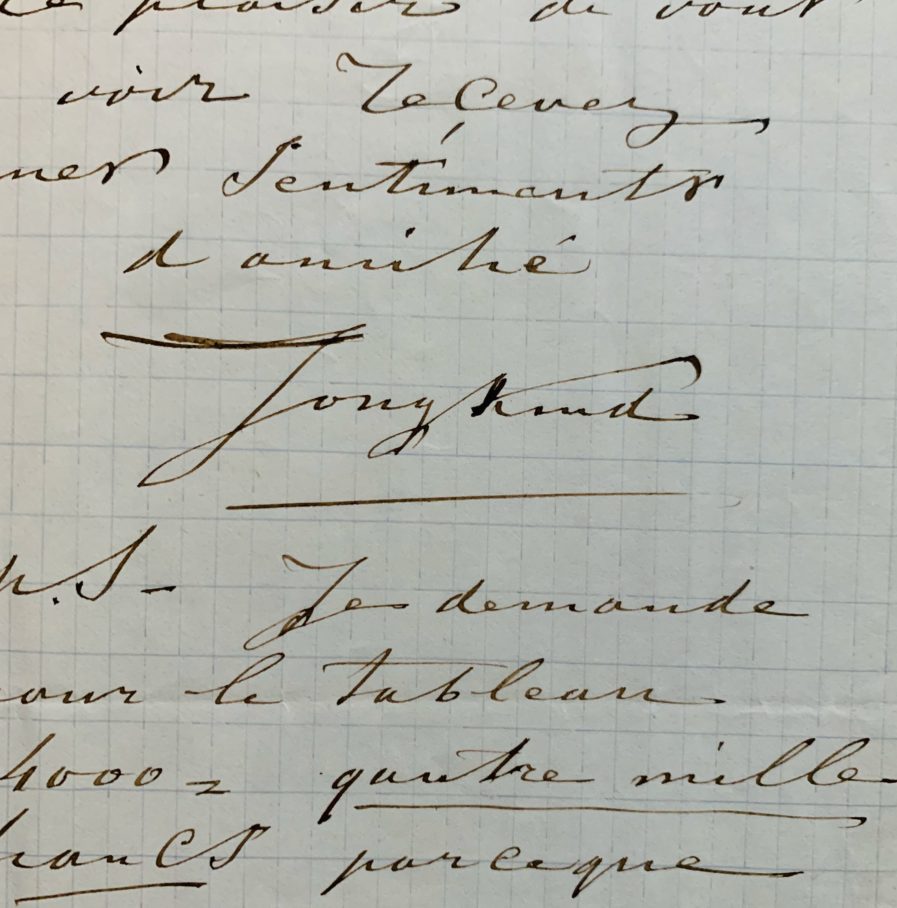 le plaisir de vous
voir Recevez
mes Sentiments
d amitié
Jongkind
p.S- Je demande
pour le tableau
4000= quatre mille
francs parceque